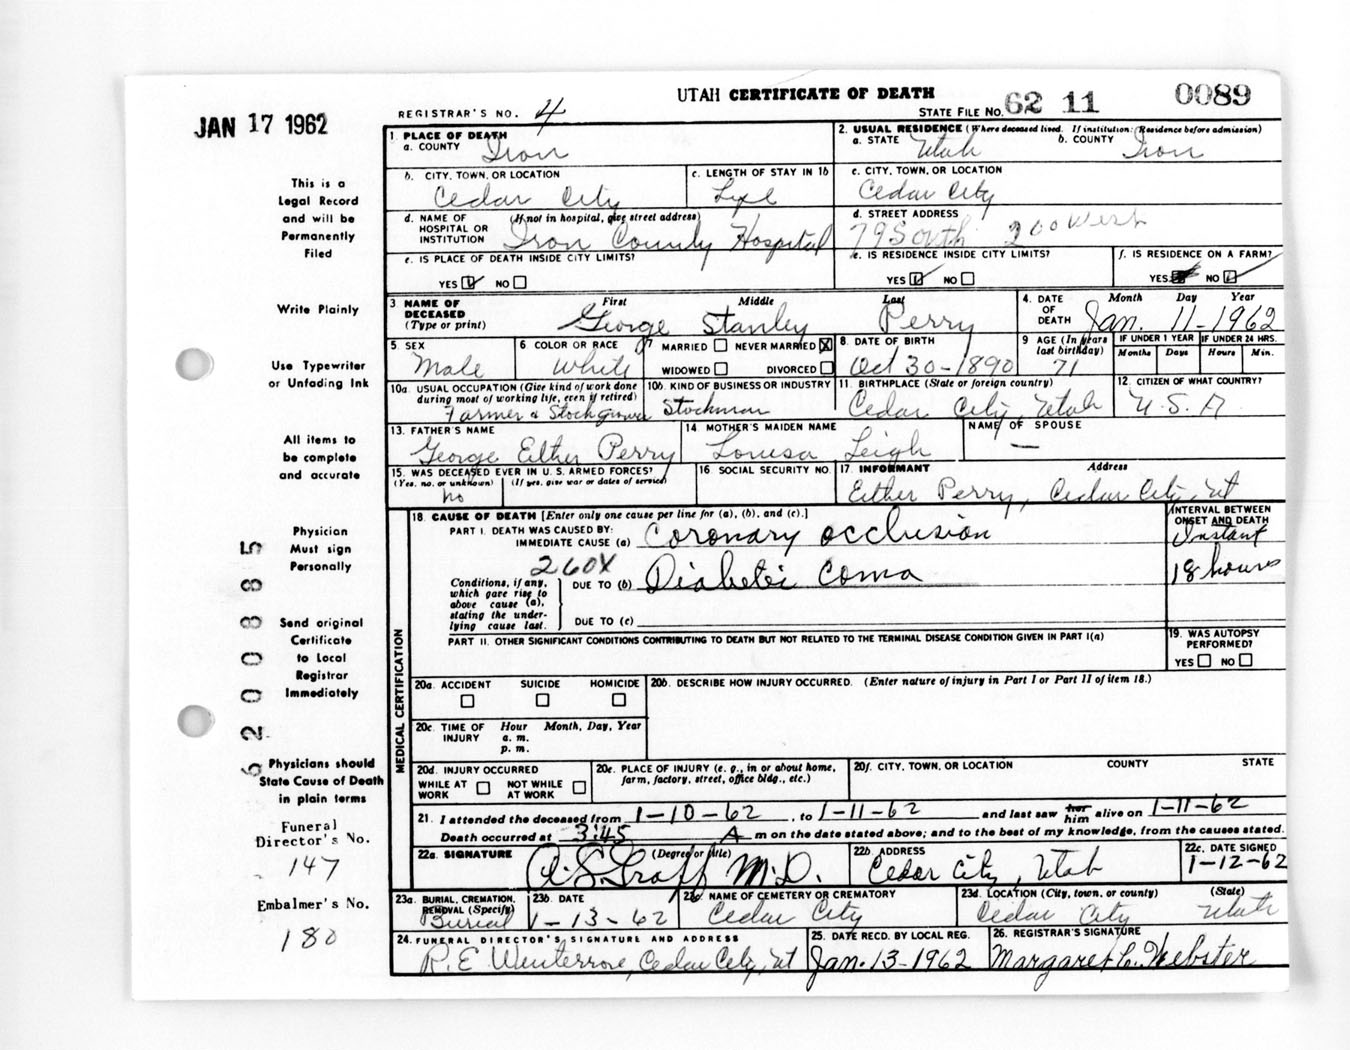 UTAH CERTIFICATE OF DEATH
STATE FILE NO. 62 11 0089
REGISTRAR'S NO. 4
JAN 17 1962
This is a
Legal Record
and will be
Permanently
Filed
Write Plainly
Use Typewriter
or Unfading Ink
All items to
be complete
and accurate
Physician
Must sign
Personally
Send original
Certificate
to Local
Registrar
Immediately
Physicians should
State Cause of Death
in plain terms
Funeral
Director's No.
147
Embalmer's No.
180
1. PLACE OF DEATH
a. COUNTY Iron
2. USUAL RESIDENCE (Where deceased lived. If institution: Residence before admission)
a. STATE Utah b. COUNTY Iron
b. CITY, TOWN, OR LOCATION
Cedar City
c. LENGTH OF STAY IN 1b
c. CITY, TOWN, OR LOCATION
Cedar City
d. NAME OF HOSPITAL OR INSTITUTION (If not in hospital, give street address)
Iron County Hospital
d. STREET ADDRESS
79 South 200 West
e. IS PLACE OF DEATH INSIDE CITY LIMITS?
YES NO
e. IS RESIDENCE INSIDE CITY LIMITS?
YES NO
f. IS RESIDENCE ON A FARM?
YES NO
3 NAME OF DECEASED (Type or print) First Middle Last
George Stanley Perry
4. DATE OF DEATH Month Day Year
Jan. 11-1962
5. SEX
Male
6 COLOR OR RACE
White
7 MARRIED NEVER MARRIED X
WIDOWED DIVORCED
8. DATE OF BIRTH
Oct 30-1890
9 AGE (In years last birthday)
71
IF UNDER 1 YEAR IF UNDER 24 HRS.
Months Days Hours Min.
10a. USUAL OCCUPATION (Give kind of work done during most of working life, even if retired)
Farmer & Stockgrower
10b. KIND OF BUSINESS OR INDUSTRY
Stockman
11. BIRTHPLACE (State or foreign country)
Cedar City, Utah
12. CITIZEN OF WHAT COUNTRY?
U.S.A
13. FATHER'S NAME
George Either Perry
14 MOTHER'S MAIDEN NAME
Louisa Leigh
NAME OF SPOUSE
—
15. WAS DECEASED EVER IN U.S. ARMED FORCES?
(Yes, no. or unknown) (If yes, give war or dates of service)
no
16 SOCIAL SECURITY NO.
17. INFORMANT Address
Either Perry, Cedar City, Ut
18. CAUSE OF DEATH [Enter only one cause per line for (a), (b), and (c).]
INTERVAL BETWEEN ONSET AND DEATH
PART I. DEATH WAS CAUSED BY:
IMMEDIATE CAUSE (a) Coronary occlusion Instant
260X
Conditions, if any, which gave rise to above cause (a), stating the underlying cause last.
DUE TO (b) Diabetic coma 18 hours
DUE TO (c)
PART II. OTHER SIGNIFICANT CONDITIONS CONTRIBUTING TO DEATH BUT NOT RELATED TO THE TERMINAL DISEASE CONDITION GIVEN IN PART I(a)
19. WAS AUTOPSY PERFORMED?
YES NO
MEDICAL CERTIFICATION
20a. ACCIDENT SUICIDE HOMICIDE
20b. DESCRIBE HOW INJURY OCCURRED. (Enter nature of injury in Part I or Part II of item 18.)
20c. TIME OF INJURY Hour Month, Day, Year
a. m.
p. m.
20d. INJURY OCCURRED
WHILE AT WORK NOT WHILE AT WORK
20e. PLACE OF INJURY (e. g., in or about home, farm, factory, street, office bldg., etc.)
20f. CITY, TOWN, OR LOCATION COUNTY STATE
21. I attended the deceased from 1-10-62, to 1-11-62 and last saw her him alive on 1-11-62
Death occurred at 3:45 A m on the date stated above; and to the best of my knowledge, from the causes stated.
22a. SIGNATURE (Degree or title)
Graff M.D.
22b. ADDRESS
Cedar City, Utah
22c. DATE SIGNED
1-12-62
23a. BURIAL, CREMATION, REMOVAL (Specify)
Burial
23b. DATE
1-13-62
23c. NAME OF CEMETERY OR CREMATORY
Cedar City
23d. LOCATION (City, town, or county) (State)
Cedar City Utah
24. FUNERAL DIRECTOR'S SIGNATURE AND ADDRESS
R. E Winterrose, Cedar City, Ut
25. DATE RECD. BY LOCAL REG.
Jan. 13-1962
26. REGISTRAR'S SIGNATURE
Margaret C. Webster